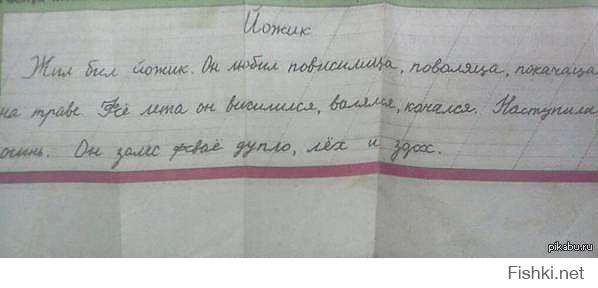 Йожик
Жил бил йожик. Он любил повисилица, поваляца, покачаца
на траве. Fсё лета он висилился, валялся, качался. Наступила
осинь. Он залес fсваё дупло, лёх и здох.
pikabu.ru
Fishki.net